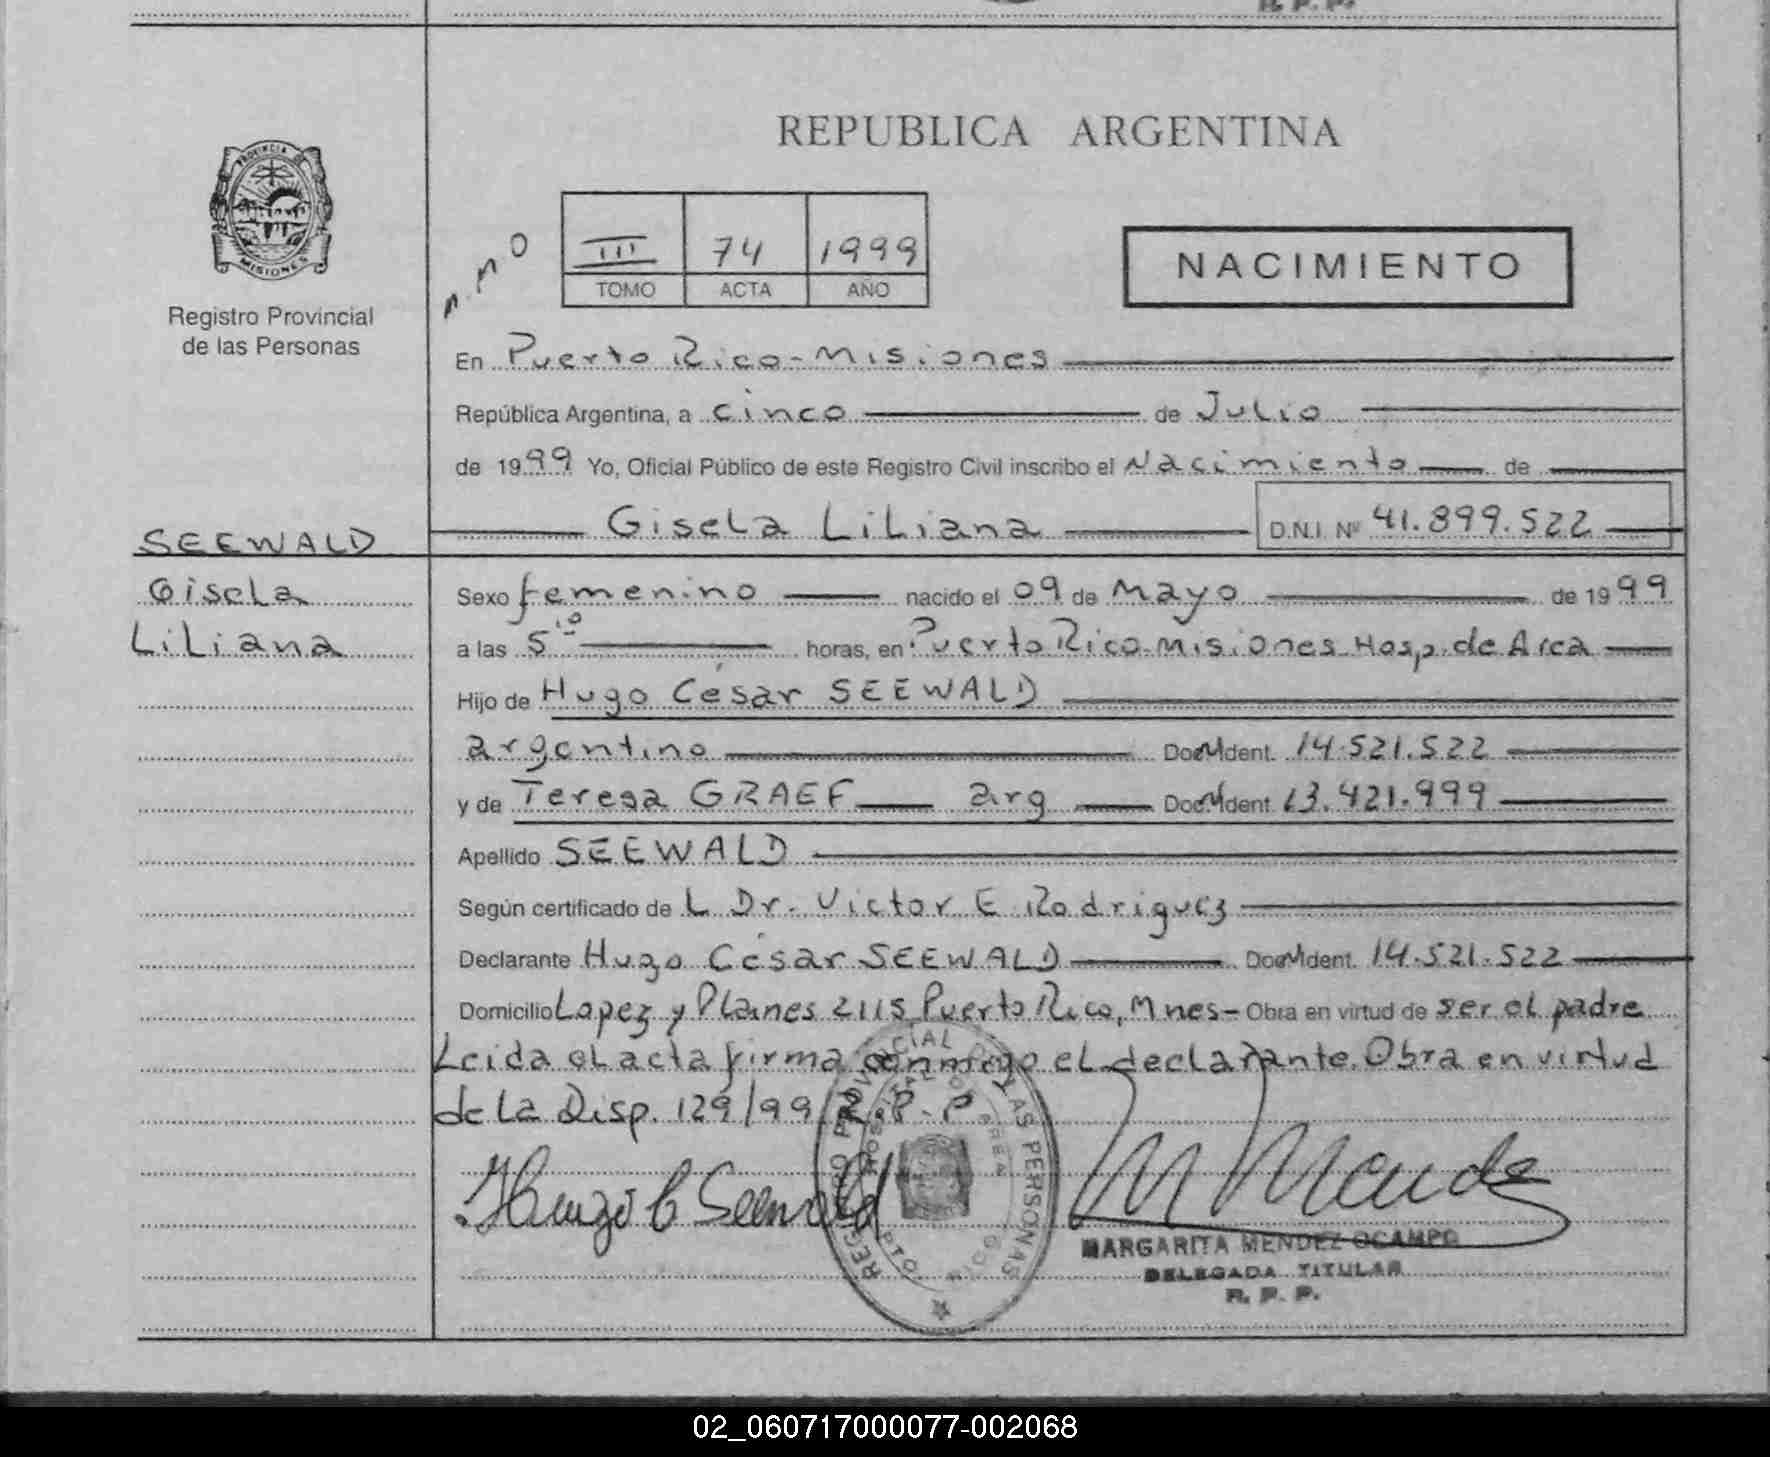 R. P. P.
REPUBLICA ARGENTINA
PROVINCIA DE
MISIONES
Registro Provincial
de las Personas
III 74 1999
TOMO ACTA AÑO
NACIMIENTO
En Puerto Rico - Misiones
República Argentina, a cinco de Julio
de 1999 Yo, Oficial Público de este Registro Civil inscribo el Nacimiento de
Gisela Liliana D.N.I. Nº 41.899.522
SEEWALD
Gisela
Liliana
Sexo femenino nacido el 09 de Mayo de 1999
a las 5 10 horas, en Puerto Rico - Misiones Hosp. de Area
Hijo de Hugo César SEEWALD
argentino Doc. Ident. 14.521.522
y de Teresa GRAEF arg Doc. Ident. 13.421.999
Apellido SEEWALD
Según certificado de L Dr. Victor E Rodriguez
Declarante Hugo César SEEWALD Doc. Ident. 14.521.522
Domicilio Lopez y Planes 2115 Puerto Rico, Mnes - Obra en virtud de ser el padre
Leida el acta firma conmigo el declarante. Obra en virtud
de la Disp. 129/99 R.P.P
Hugo C Seewald
REGISTRO PROVINCIAL DE LAS PERSONAS
HOSPITAL DE AREA
MARGARITA MENDEZ OCAMPO
DELEGADA TITULAR
R. P. P.
02_060717000077-002068